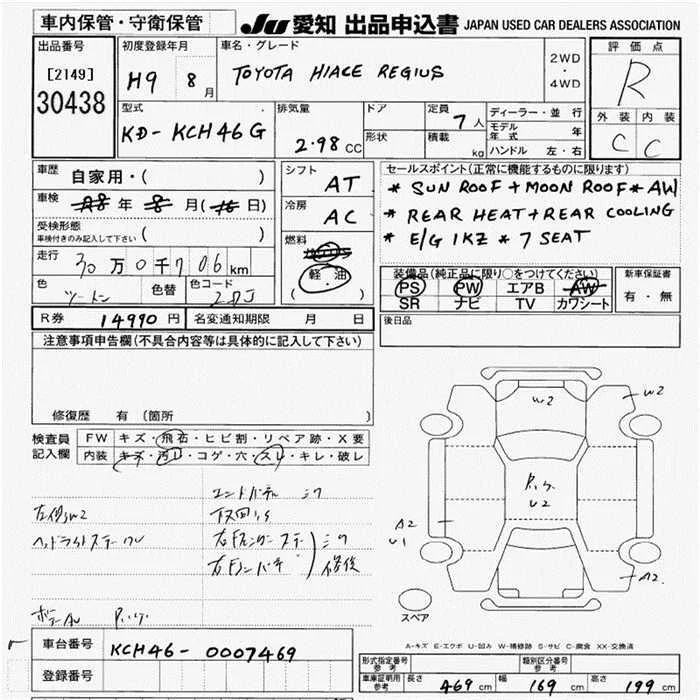 車内保管・守衛保管
JU 愛知 出品申込書 JAPAN USED CAR DEALERS ASSOCIATION
出品番号
[2149]
30438
初度登録年月
H9 8月
車名・グレード
TOYOTA HIACE REGIUS
2WD
・
4WD
評価点
R
外装 内装
C C
型式
KD-KCH46G
排気量
2.98 CC
ドア
形状
定員
7人
積載
kg
ディーラー・並行
モデル年式 年
ハンドル 左・右
車歴
自家用・( )
車検
年 8 月( 日)
受検形態
車検付きのみ記入して下さい ( )
走行
30万0千706km
色
ツートン
色替
色コード
シフト
AT
冷房
AC
燃料
軽・油
( )
セールスポイント(正常に機能するものに限ります)
* SUN ROOF + MOON ROOF * AW
* REAR HEAT + REAR COOLING
* E/G 1KZ * 7 SEAT
装備品(純正品に限り○をつけてください)
PS PW エアB AW
SR ナビ TV カワシート
新車保証書
有・無
R券 14990円
名変通知期限 月 日
後日品
注意事項申告欄(不具合内容等は具体的に記入して下さい)
修復歴 有(箇所 )
検査員
記入欄
FW キズ・飛石・ヒビ割・リペア跡・X要
内装 キズ・汚レ・コゲ・穴・スレ・キレ・破レ
W2
W2
U2
A2
U1
A2
スペア
A-キズ E-エクボ U-凹み W-補修跡 S-サビ C-腐食 XX-交換済
車台番号
KCH46-0007469
登録番号
形式指定番号
参考
類別区分番号
参考
車庫証明用
参考
長さ 469cm 幅 169cm 高さ 199cm